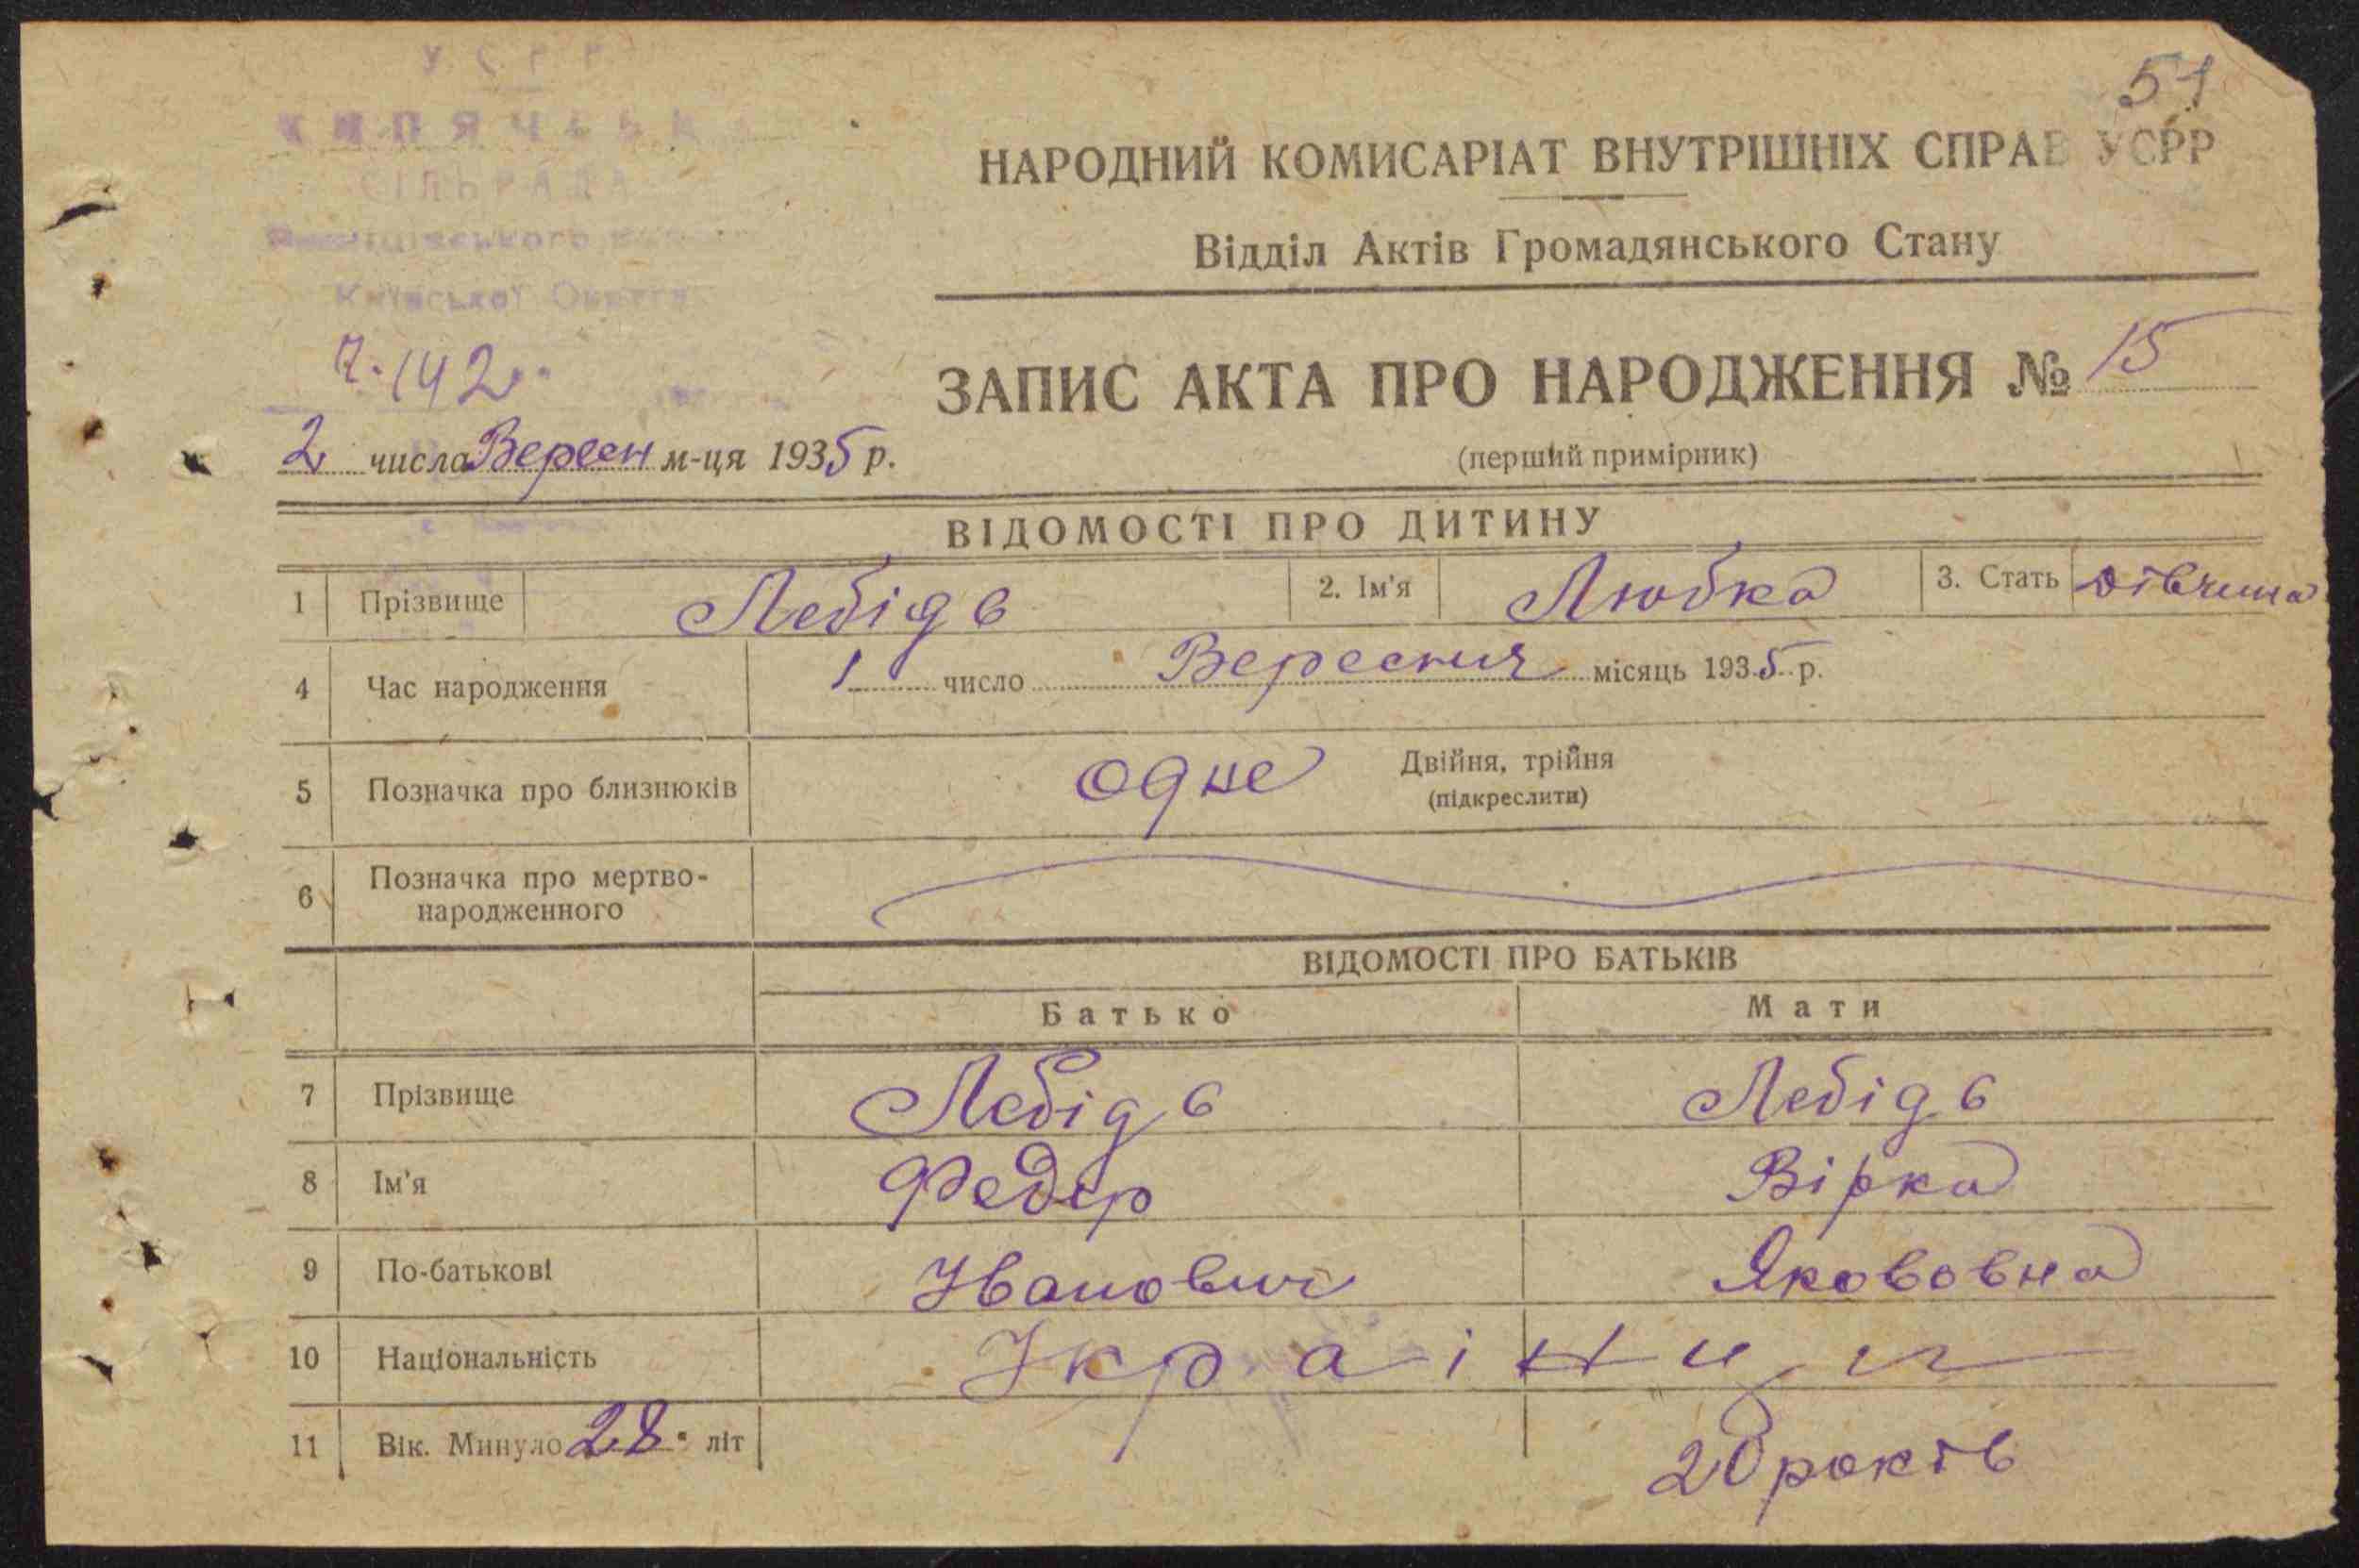 УСРР
СІЛЬРАДА
Київської
51
НАРОДНИЙ КОМИСАРІАТ ВНУТРІШНІХ СПРАВ УСРР
Відділ Актів Громадянського Стану
142
ЗАПИС АКТА ПРО НАРОДЖЕННЯ № 15
2 числа Вересн м-ця 1935 р.
(перший примірник)
ВІДОМОСТІ ПРО ДИТИНУ
1 Прізвище Лебідь 2. Ім'я Любка 3. Стать дівчина
4 Час народження 1 число Вересня місяць 1935 р.
5 Позначка про близнюків одне Двійня, трійня
(підкреслити)
6 Позначка про мертво-
народженного
ВІДОМОСТІ ПРО БАТЬКІВ
Батько Мати
7 Прізвище Лебідь Лебідь
8 Ім'я Федір Вірка
9 По-батькові Іванович Якововна
10 Національність
11 Вік. Минуло 28 літ 20 років